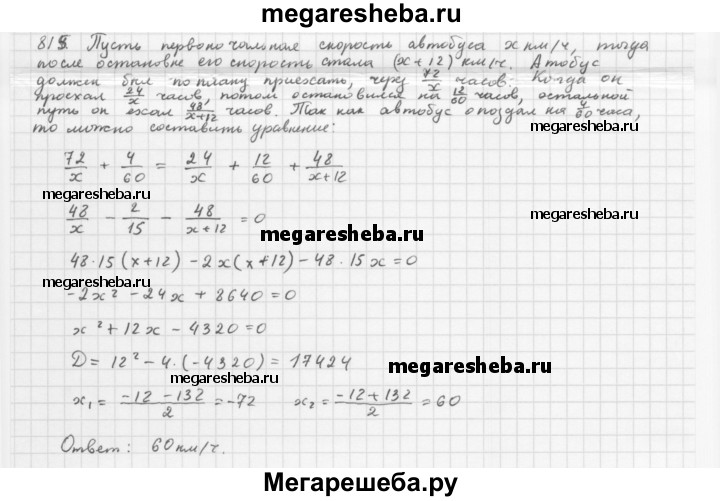 megaresheba.ru
815. Пусть первоначальная скорость автобуса x км/ч, тогда
после остановке его скорость стала (x+12) км/ч. Атобус
должен был по плану приезжать, через 72/x часов. Когда он
проехал 24/x часов, потом остановился на 12/60 часов, остальной
путь он ехал 48/(x+12) часов. Так как автобус опоздал на 4/60 часа,
то можно составить уравнение:
72/x + 4/60 = 24/x + 12/60 + 48/(x+12)
megaresheba.ru
megaresheba.ru
48/x - 2/15 - 48/(x+12) = 0
megaresheba.ru
48·15(x+12) - 2x(x+12) - 48·15x = 0
megaresheba.ru
-2x² - 24x + 8640 = 0
x² + 12x - 4320 = 0
D = 12² - 4·(-4320) = 17424
megaresheba.ru
megaresheba.ru
x₁ = (-12-132)/2 = -72 x₂ = (-12+132)/2 = 60
Ответ: 60 км/ч.
megaresheba.ru
Мегарешеба.ру